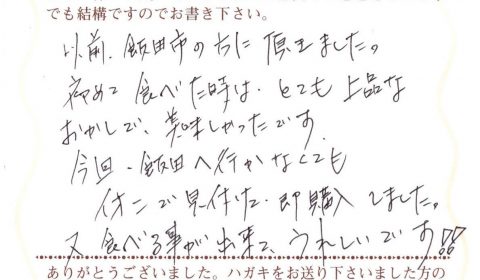 でも結構ですのでお書き下さい。
以前、飯田市の方に頂きました。
初めて食べた時は、とても上品な
おかしで、美味しかったです。
今回、飯田へ行かなくても
イオンで見付け、即購入しました。
又食べる事が出来て、うれしいです!!
ありがとうございました。ハガキをお送り下さいました方の